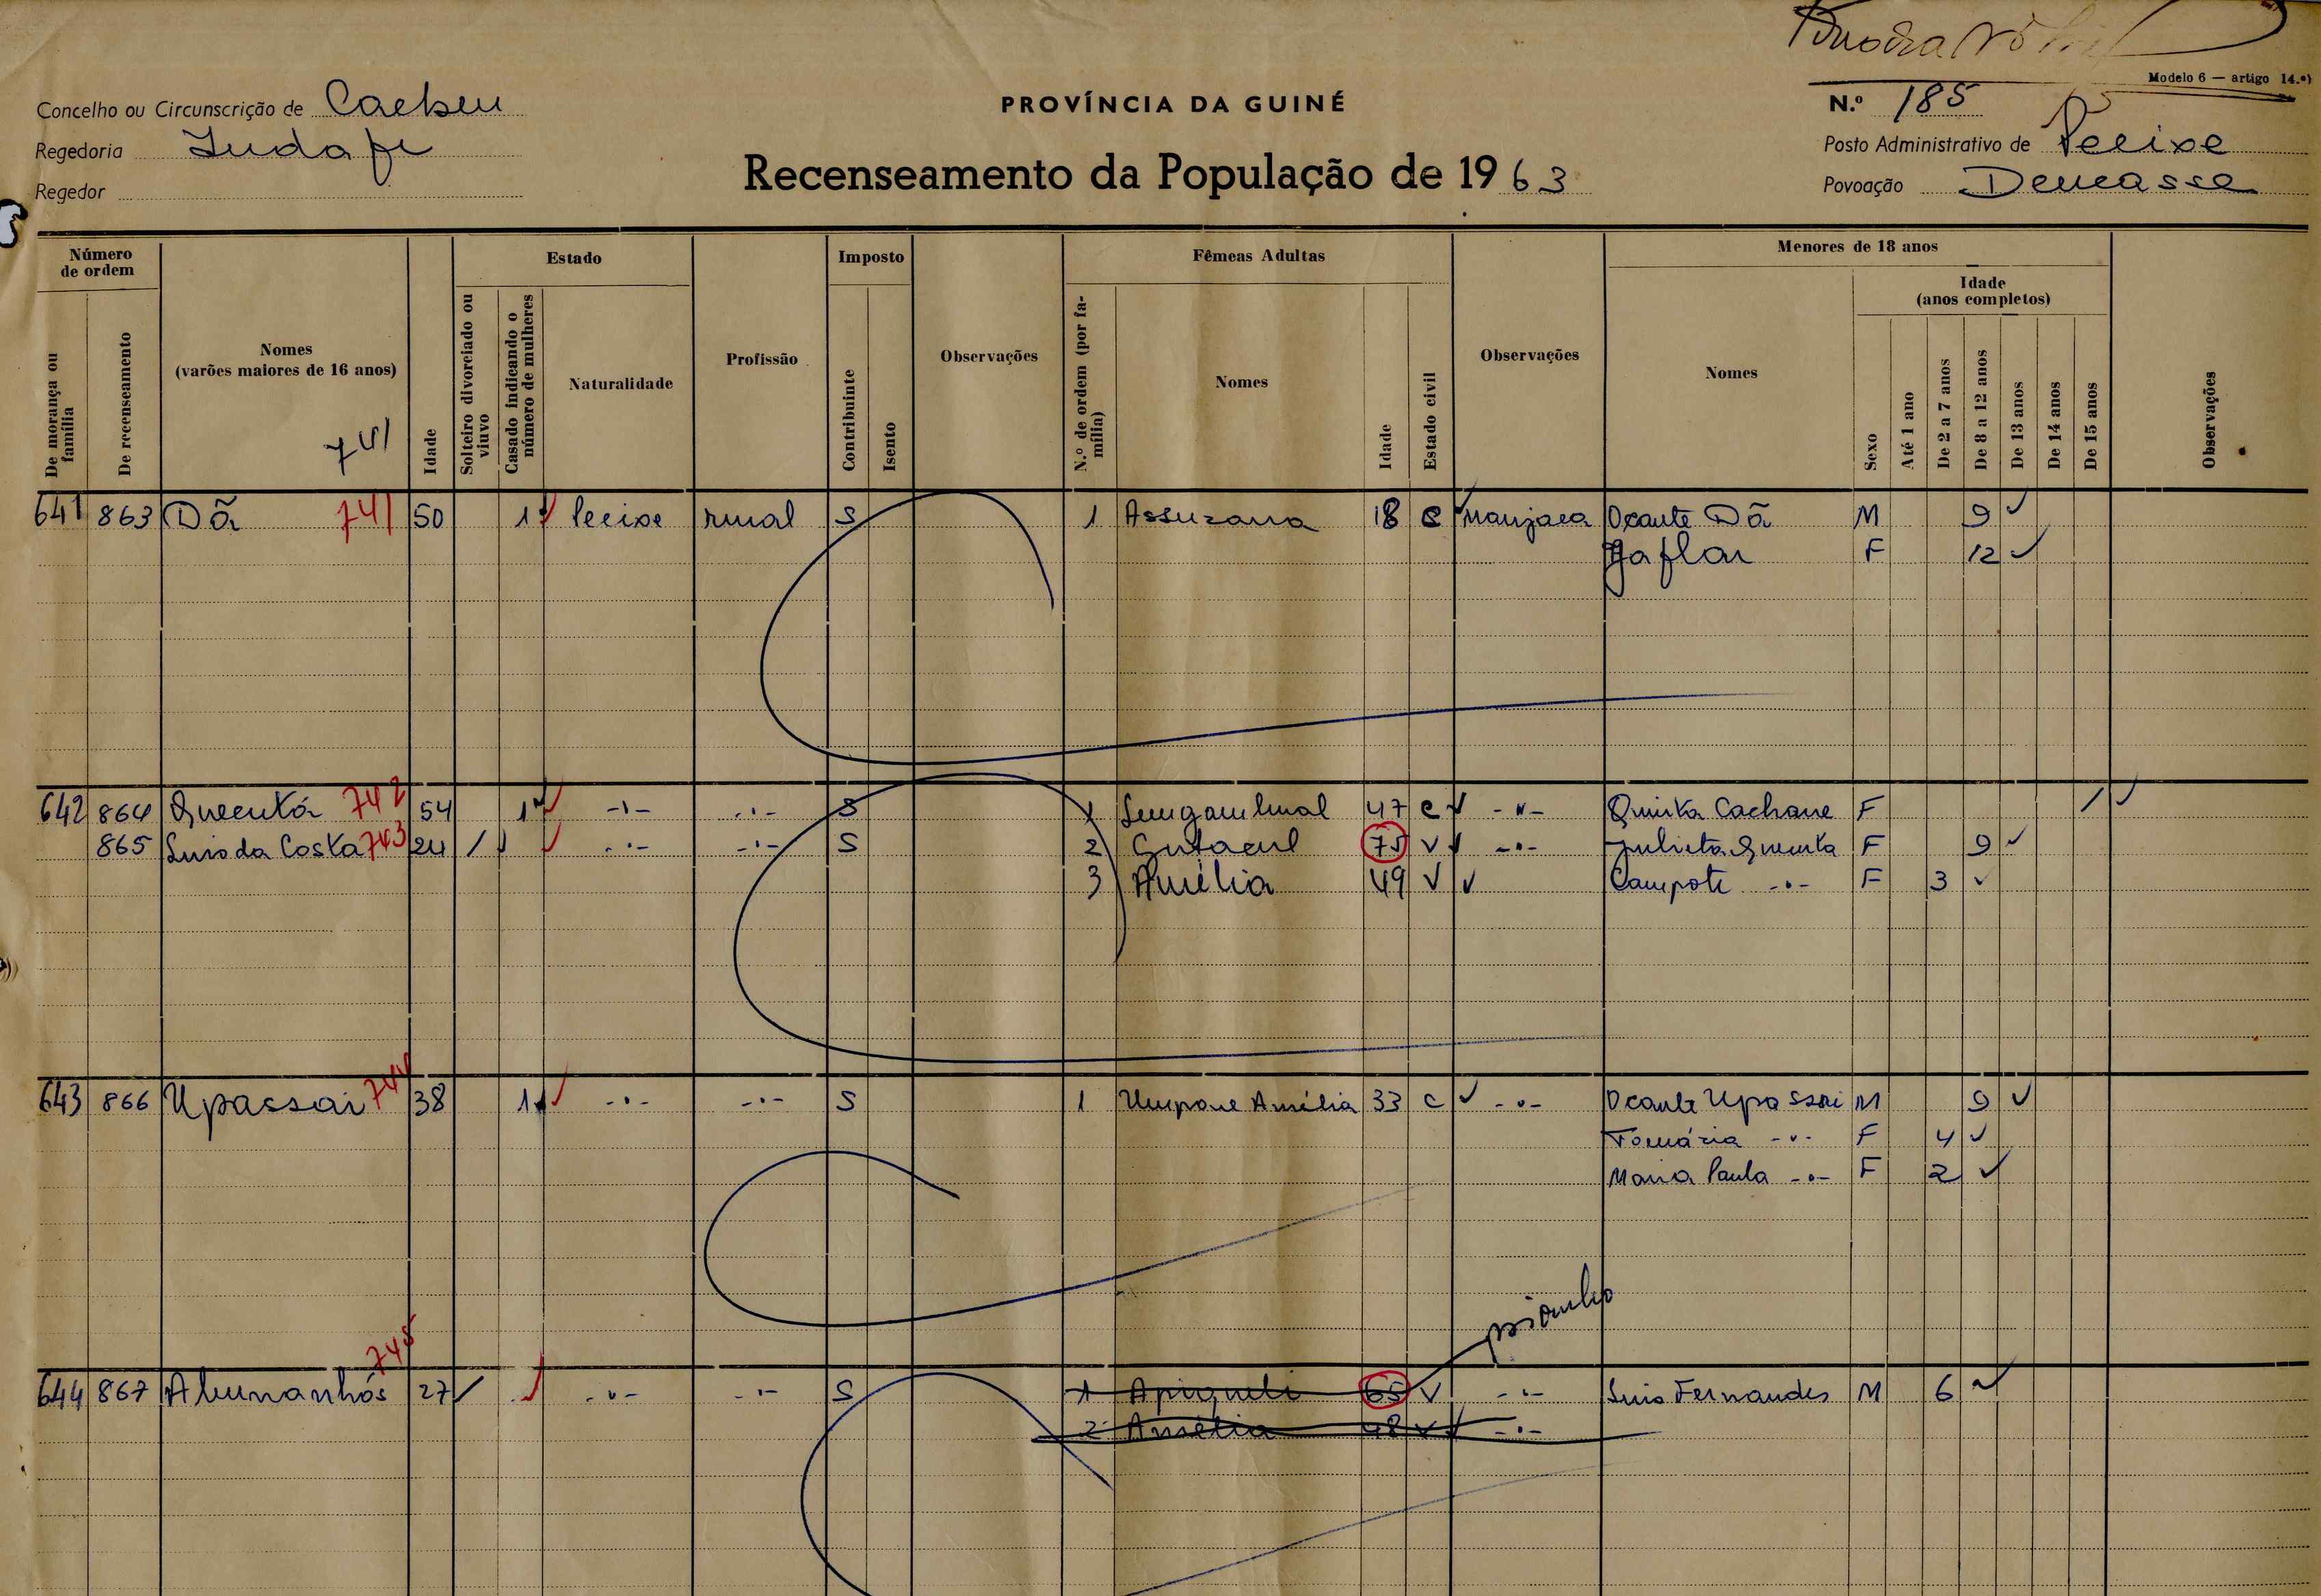 Modelo 6 — artigo 14.º)
Concelho ou Circunscrição de Cacheu
PROVÍNCIA DA GUINÉ
N.º 185
Regedoria
Posto Administrativo de Pecixe
Regedor
Recenseamento da População de 1963
Povoação
Número de ordem
Estado
Imposto
Fêmeas Adultas
Menores de 18 anos
Idade (anos completos)
De morança ou família
De recenseamento
Nomes (varões maiores de 16 anos)
741
Idade
Solteiro divorciado ou viuvo
Casado indicando o número de mulheres
Naturalidade
Profissão
Contribuinte
Isento
Observações
N.º de ordem (por família)
Nomes
Idade
Estado civil
Observações
Nomes
Sexo
Até 1 ano
De 2 a 7 anos
De 8 a 12 anos
De 13 anos
De 14 anos
De 15 anos
Observações
641 863 Dã 741 50 1 Pecixe rural S 1 Assuzana 18 C manjaca Ocante Dã M 9
F 12
642 864 742 54 1 -"- -"- S 1 47 C -"- Quinta Cachane F /
865 Luis da Costa 743 24 / -"- -"- S 2 75 V -"- Julieta F 9
3 Amélia 49 V Campote -"- F 3
643 866 Upassai 744 38 1 -"- -"- S 1 Umpone Amélia 33 C -"- Ocante Upassai M 9
-"- F 4
Maria Paula -"- F 2
644 867 745 27 -"- -"- S 1 65 V -"- Luis Fernandes M 6
2 Amélia 48 V -"-